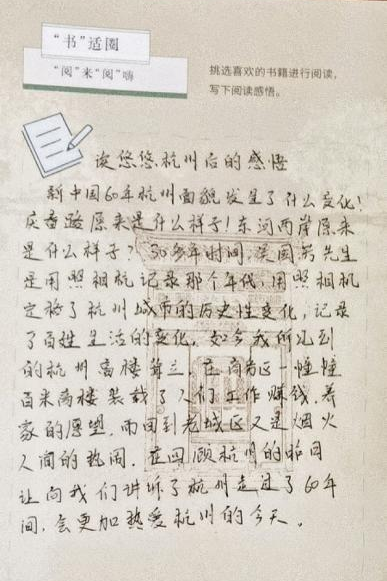 “书”适圈
“阅”来“阅”嗨
挑选喜欢的书籍进行阅读，
写下阅读感悟。
读悠悠杭州后的感悟
新中国60年杭州面貌发生了什么变化！
庆春路原来是什么样子！东河两岸原来
是什么样子？30多年时间，吴国方先生
是用照相机记录那个年代，用照相机
定格了杭州城市的历史性变化，记录
了百姓生活的变化，如今我所见到
的杭州高楼耸立，在商务区一幢幢
百米高楼装载了人们工作赚钱，养
家的愿望，而回到老城区又是烟火
人间的热闹，在回顾杭州的昨日
让向我们讲诉了杭州走过了60年
间，会更加热爱杭州的今天。